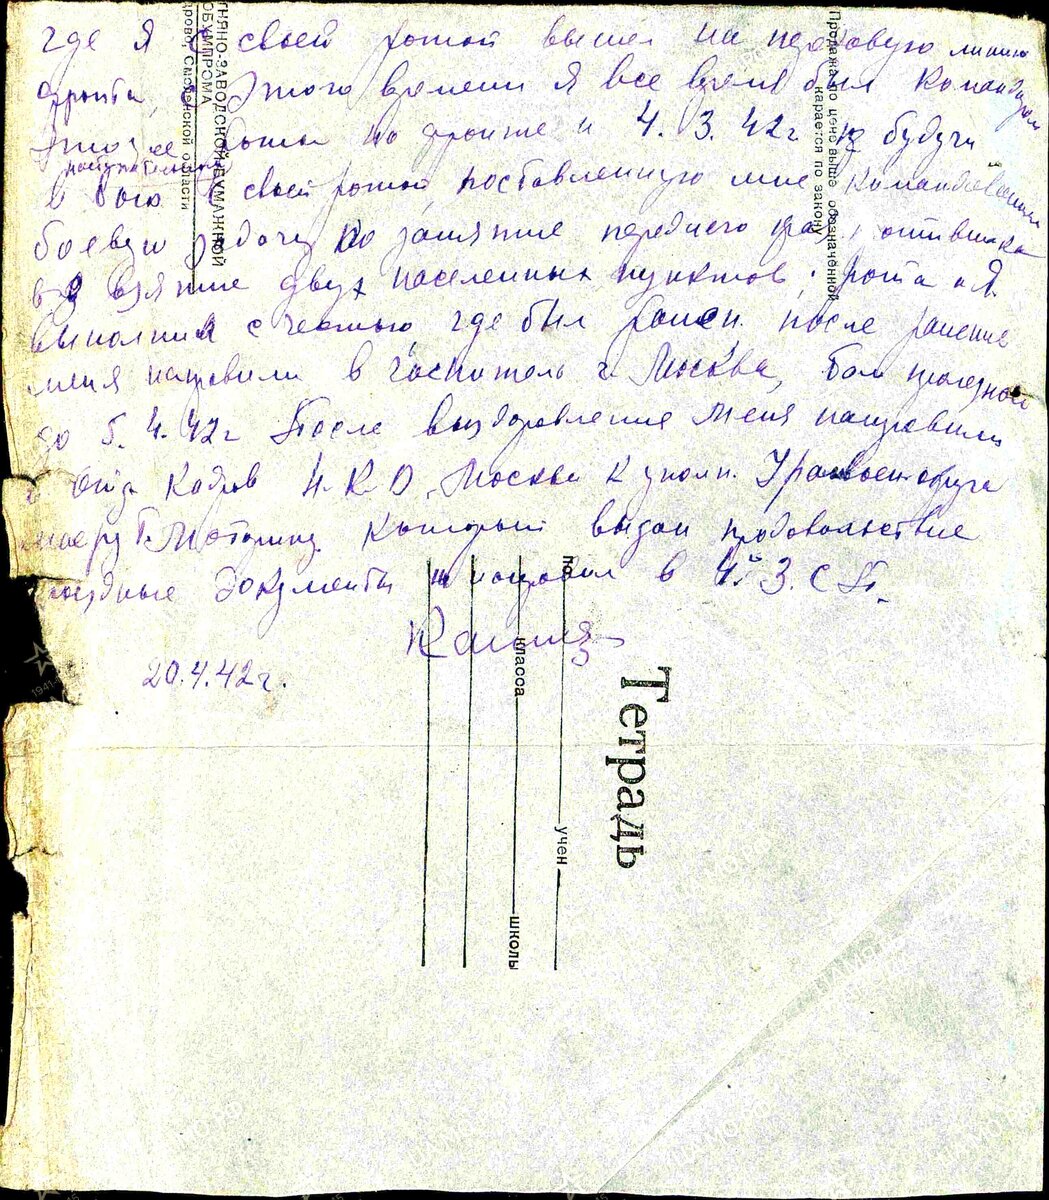 где я с своей ротой вышел на передовую линию
фронта, с этого времени я все время был Командиром
этой же роты на фронте и 4.3.42г будучи
наступательном
в бою с своей ротой, поставленную мне командованием
боевую задачу по занятие переднего края противника
взятие двух населенных пунктов, рота и я
выполнил с честью где был ранен. после ранение
меня направили в госпиталь г. Москва,
до 5.4.42г После выздоровления меня направили
Отд. Кадров Н.К.О. Москва к уполн. Уралвоенокруга
Который выдал продовольствие
документы и направил в 4й З.С.П.
20.4.42г.
ГНЯНО-ЗАВОДСКОЙ БУМАЖНОЙ
ОБУМПРОМА
дрово, Смоленской области
Продажа по цене выше обозначенной
карается по закону
Тетрадь
по
учен
класса
школы